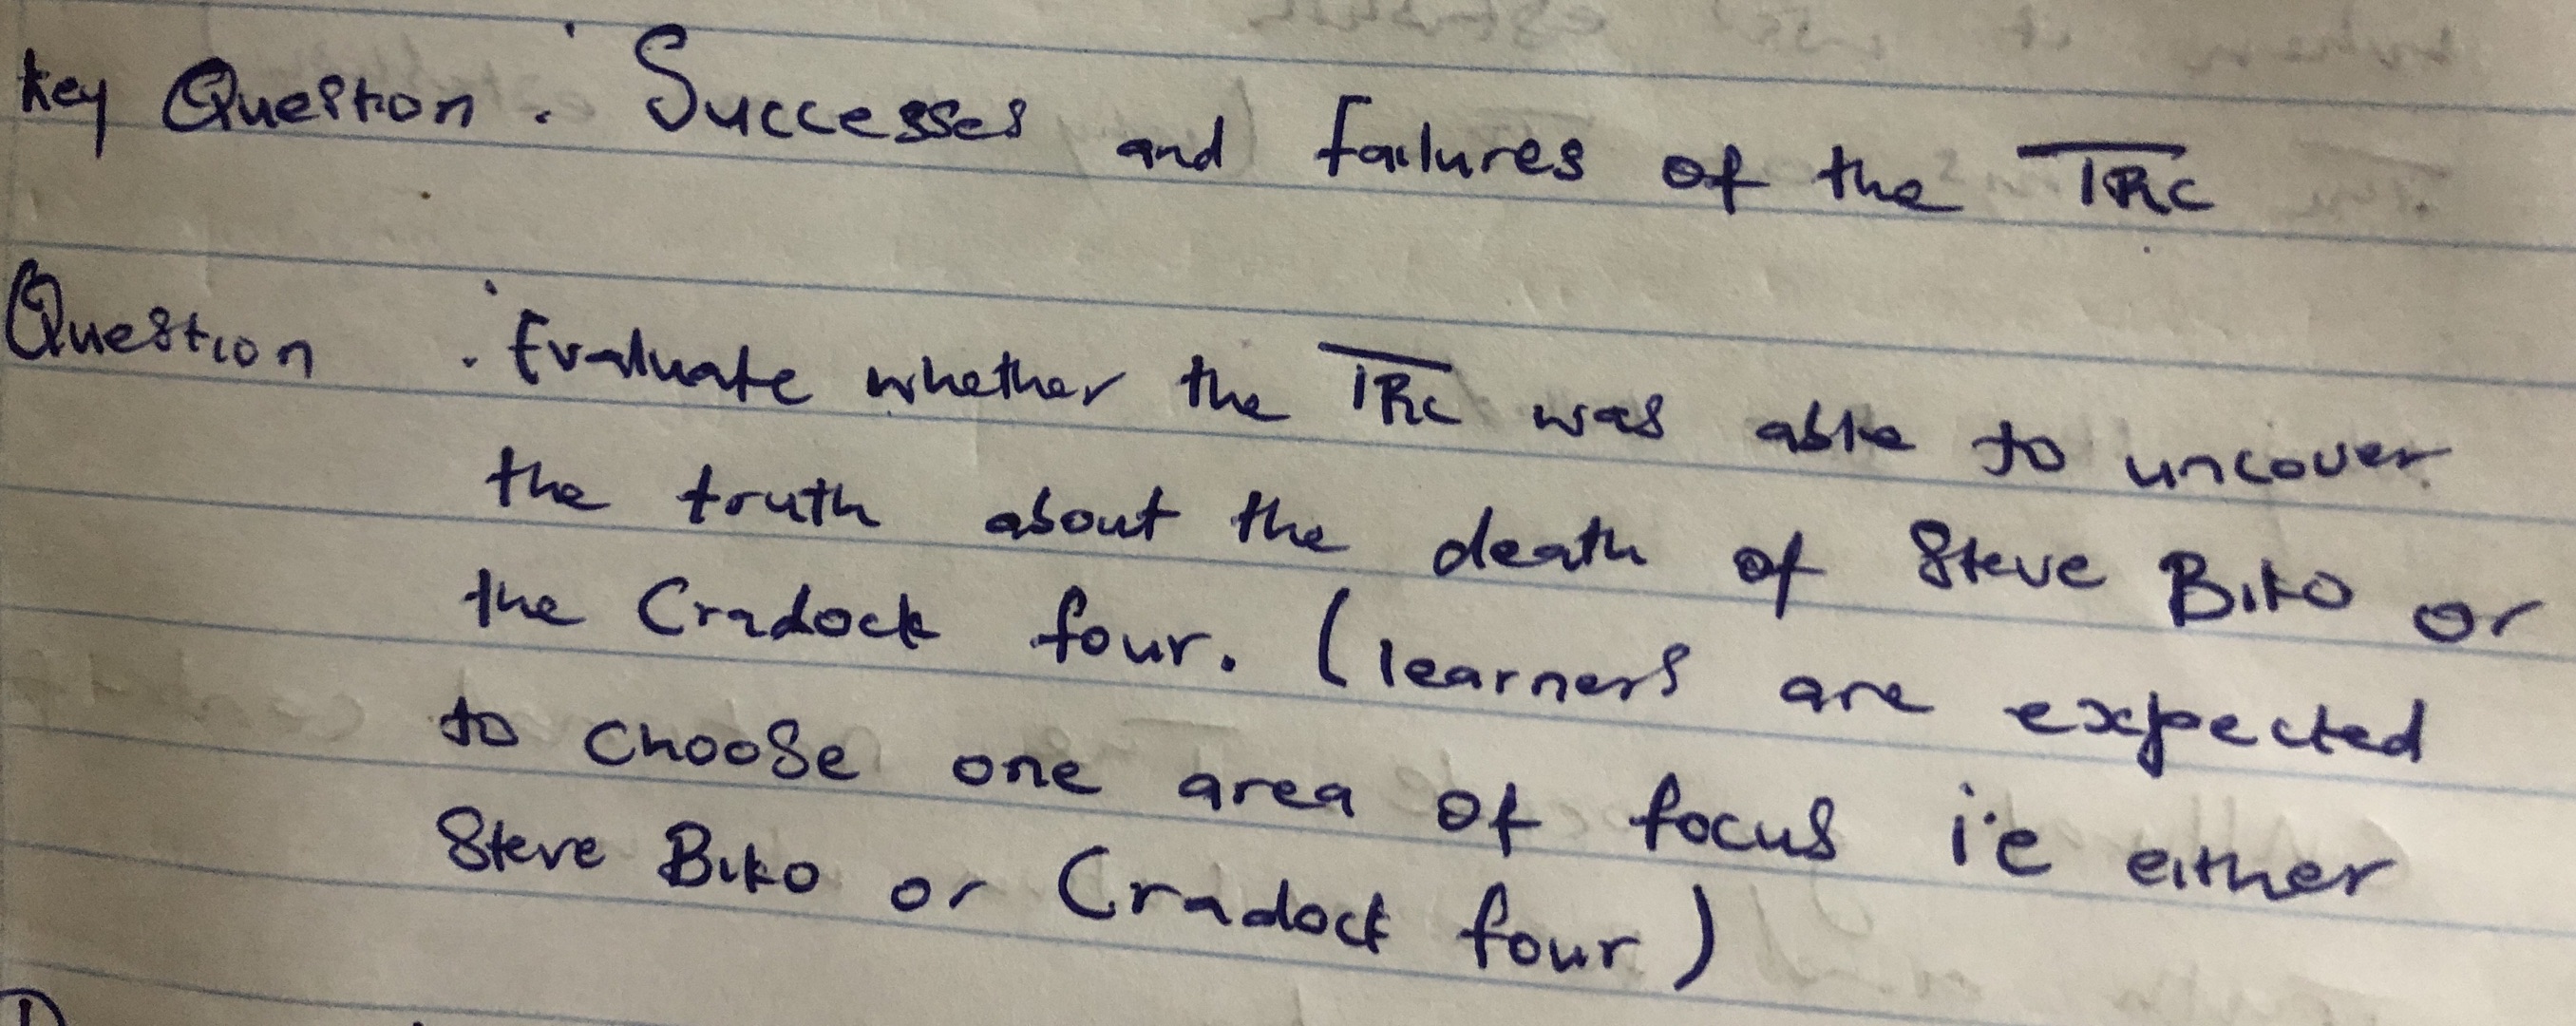 Key Question : Successes and failures of the TRC
Question : Evaluate whether the TRC was able to uncover
the truth about the death of Steve Biko or
the Cradock four. (learners are expected
to choose one area of focus i.e either
Steve Biko or Cradock four)